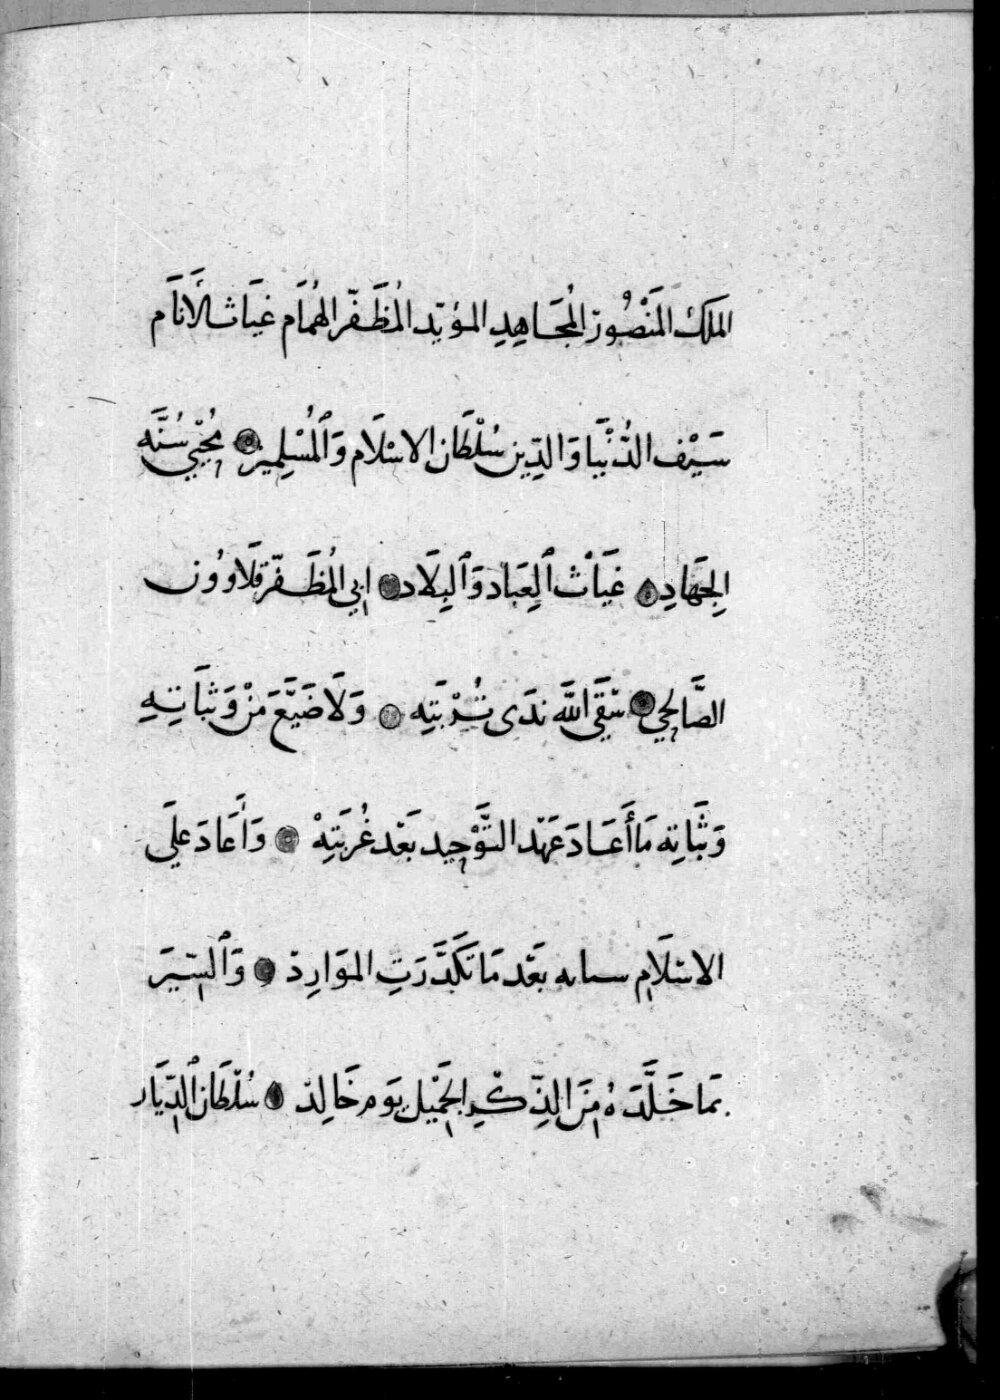 الملك المَنْصُور المُجَاهِدِ المؤيّد المُظَفّر الهُمَام غيَاث الأَنَام
سَيْف الدُّنْيَا وَالدِّين سُلْطَان الاسْلَام وَٱلْمُسْلِمِين مُحْيي سُنَّه
الجِهَادِ غيَاث ٱلعِبَاد وَٱلبِلَاد ابي المُظَفّر قَلَاوُون
الصَّالحِي سَقَى اللَّه نَدَى تُرْبَتِه وَلَا ضَيَّعَ مَنْ وَثَبَاتِهِ
وَثَبَاتِه مَا أَعَادَ عَهْد التَّوْحِيد بَعْد غُرْبَتِهْ وَأَعَادَ عَلَى
الاسْلَامِ بَعْد مَا تَكَدَّرَتِ الموَارِدْ وَٱلسِّيَرَ
بمَا خَلَّدَهُ مِنَ الذِّكْرِ الجَمْيل يَوم خَالِدْ سُلْطَان ٱلدِّيَار